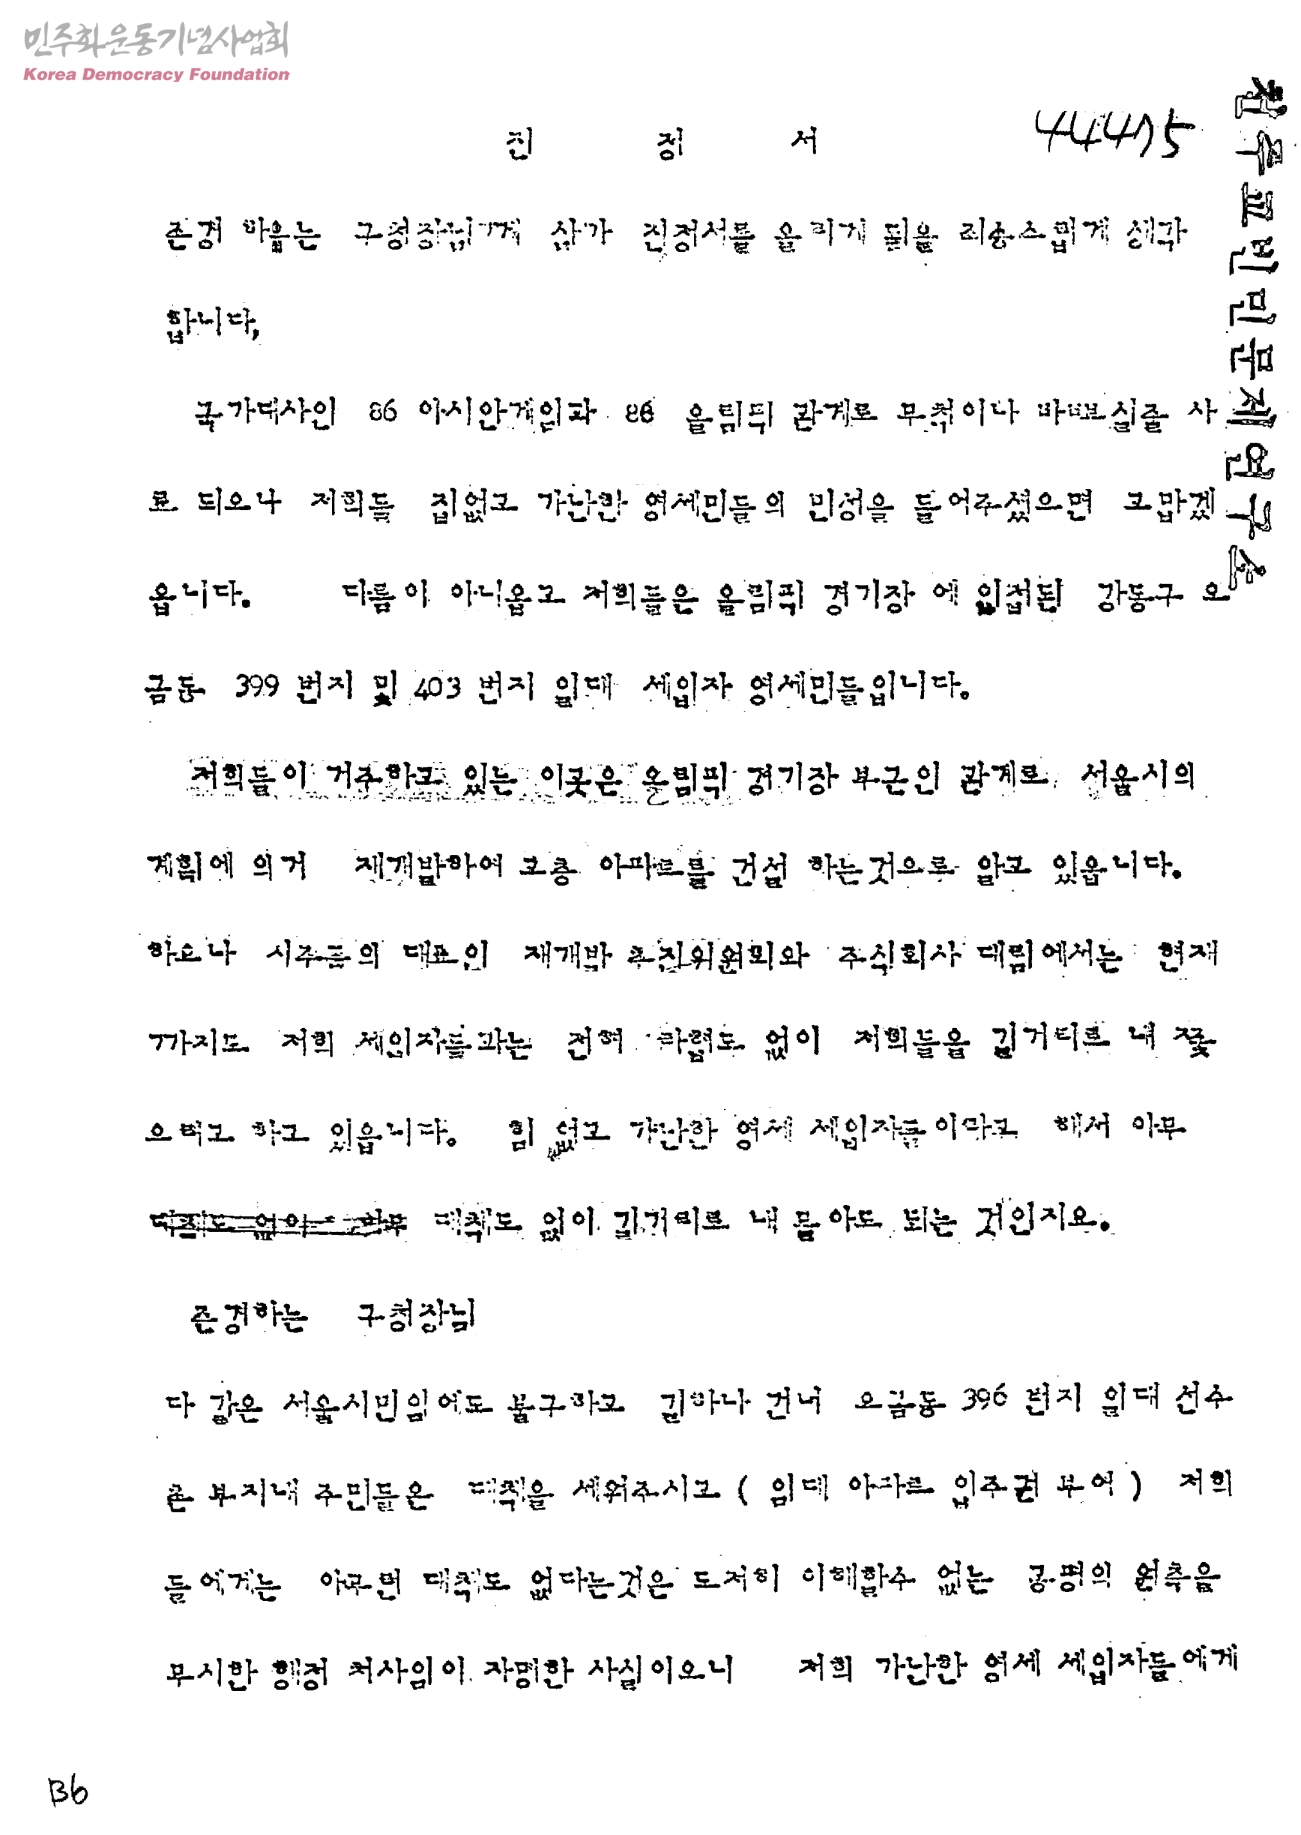 민주화운동기념사업회
Korea Democracy Foundation
진 정 서
44475
천주교빈민문제연구소
존경 하옵는 구청장님께 삼가 진정서를 올리게 됨을 죄송스럽게 생각
합니다,
국가대사인 86 아시안게임과 88 올림픽 관계로 무척이나 바쁘실줄 사
료 되오나 저희들 집없고 가난한 영세민들의 민성을 들어주셨으면 고맙겠
읍니다. 다름이 아니옵고 저희들은 올림픽 경기장 에 인접된 강동구 오
금동 399 번지 및 403 번지 일대 세입자 영세민들입니다.
저희들이 거주하고 있는 이곳은 올림픽 경기장 부근인 관계로 서울시의
계획에 의거 재개발하여 고층 아파트를 건설 하는것으로 알고 있읍니다.
하오나 시주들의 대표인 재개발 추진위원회와 주식회사 대림에서는 현재
까지도 저희 세입자들과는 전혀 타협도 없이 저희들을 길거리로 내 쫓
으려고 하고 있읍니다. 힘 없고 가난한 영세 세입자들이라고 해서 아무
대책도 없이 길거리로 내 몰아도 되는 것인지요.
존경하는 구청장님
다 같은 서울시민임에도 불구하고 길하나 건너 오금동 396 번지 일대 선수
촌 부지내 주민들은 대책을 세워주시고 ( 임대 아파트 입주권 부여 ) 저희
들에게는 아무런 대책도 없다는것은 도저히 이해할수 없는 공평의 원측을
무시한 행정 처사임이 자명한 사실이오니 저희 가난한 영세 세입자들에게
B6